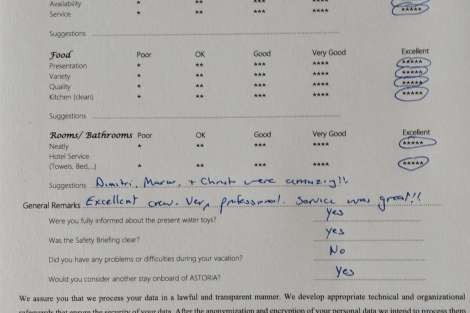 Availability * ** *** **** *****
Service * ** *** **** *****
Suggestions
Food Poor OK Good Very Good Excellent
Presentation * ** *** **** *****
Variety * ** *** **** *****
Quality * ** *** **** *****
Kitchen (clean) * ** *** **** *****
Suggestions
Rooms/ Bathrooms Poor OK Good Very Good Excellent
Neatly * ** *** **** *****
Hotel Service
(Towels, Bed,...) * ** *** **** *****
Suggestions Dimitri, + were amazing!!
General Remarks Excellent crew. Very professional. Service was great!!
Were you fully informed about the present water toys? Yes
Was the Safety Briefing clear? Yes
Did you have any problems or difficulties during your vacation? No
Would you consider another stay onboard of ASTORIA? Yes
We assure you that we process your data in a lawful and transparent manner. We develop appropriate technical and organizational
safeguards that ensure the security of your data. After the anonymization and encryption of your personal data we intend to process them